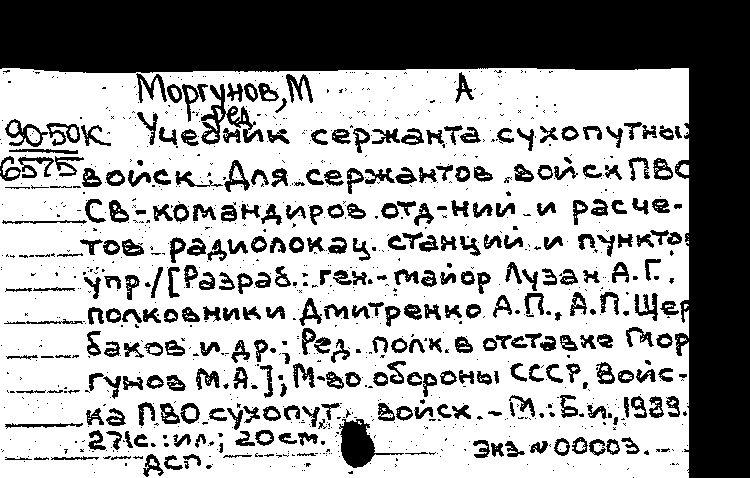 Моргунов, М А
ред.
90-50К Учебник сержанта сухопутных
6575 войск: Для сержантов войск ПВО
СВ-командиров отд-ний и расче-
тов радиолокац. станций и пунктов
упр./[Разраб.: ген.-майор Лузан А.Г.,
полковники Дмитренко А.П., А.П.Щер
баков и др.; Ред. полк. в отставке Мор
гунов М.А.]; М-во обороны СССР, Войс-
ка ПВО сухопут. войск. - М.: Б.и., 1989.
271с.: ил.; 20 см.
Экз. № 00003.
ДСП.